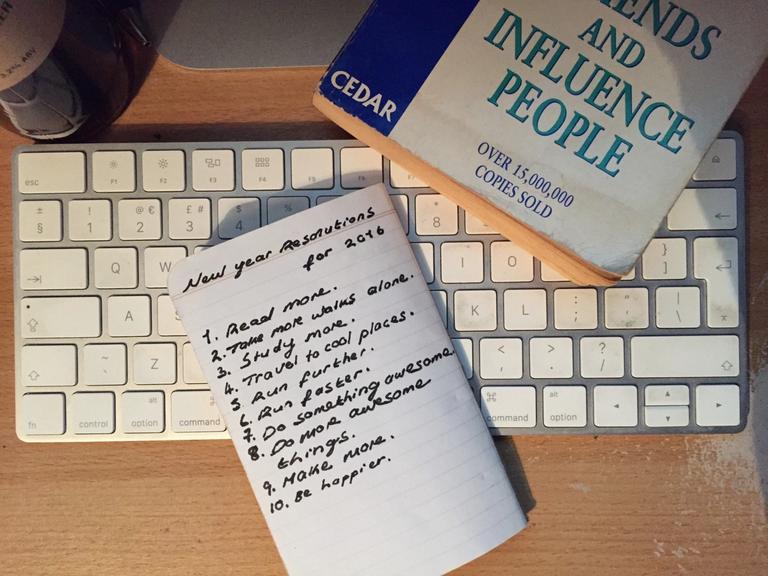 IENDS
AND
INFLUENCE
PEOPLE
CEDAR
OVER 15,000,000
COPIES SOLD
New year Resolutions
for 2016
1. Read more.
2. Take more walks alone.
3. Study more.
4. Travel to cool places.
5. Run further.
6. Run faster.
7. Do something awesome.
8. Do more awesome
things.
9. Make more.
10. Be happier.
esc F1 F2 F3 F4 F5 F6
± § ! 1 @ € 2 £ # 3 $ 4 % * 8
Q W I O } ]
A K L : ; " ' | \
~ ` Z < , > . ? /
fn control alt option command ⌘ command alt option